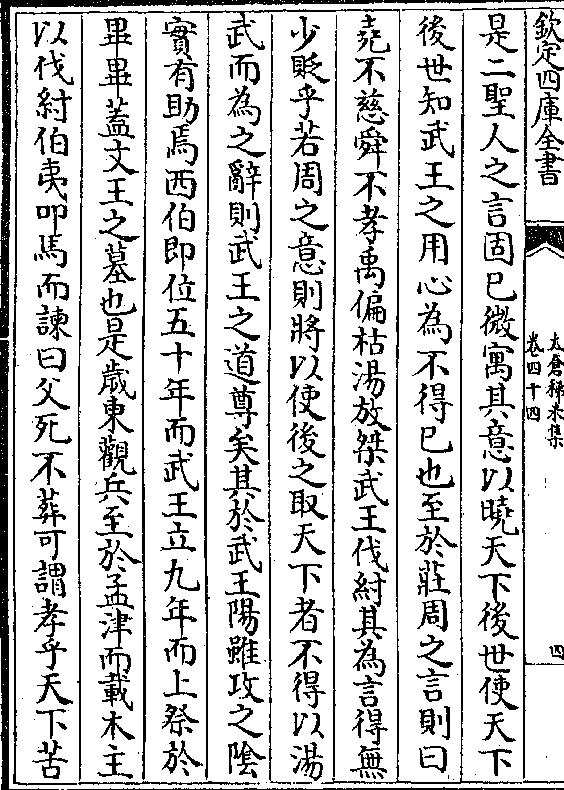 欽定四庫全書
太倉稊米集
卷四十四
四
是二聖人之言固已微寓其意以曉天下後世使天下
後世知武王之用心為不得已也至於莊周之言則曰
堯不慈舜不孝禹偏枯湯放桀武王伐紂其為言得無
少貶乎若周之意則將以使後之取天下者不得以湯
武而為之辭則武王之道尊矣其於武王陽雖攻之陰
實有助焉西伯即位五十年而武王立九年而上祭於
畢畢蓋文王之墓也是歲東觀兵至於孟津而載木主
以伐紂伯夷叩馬而諫曰父死不葬可謂孝乎天下苦